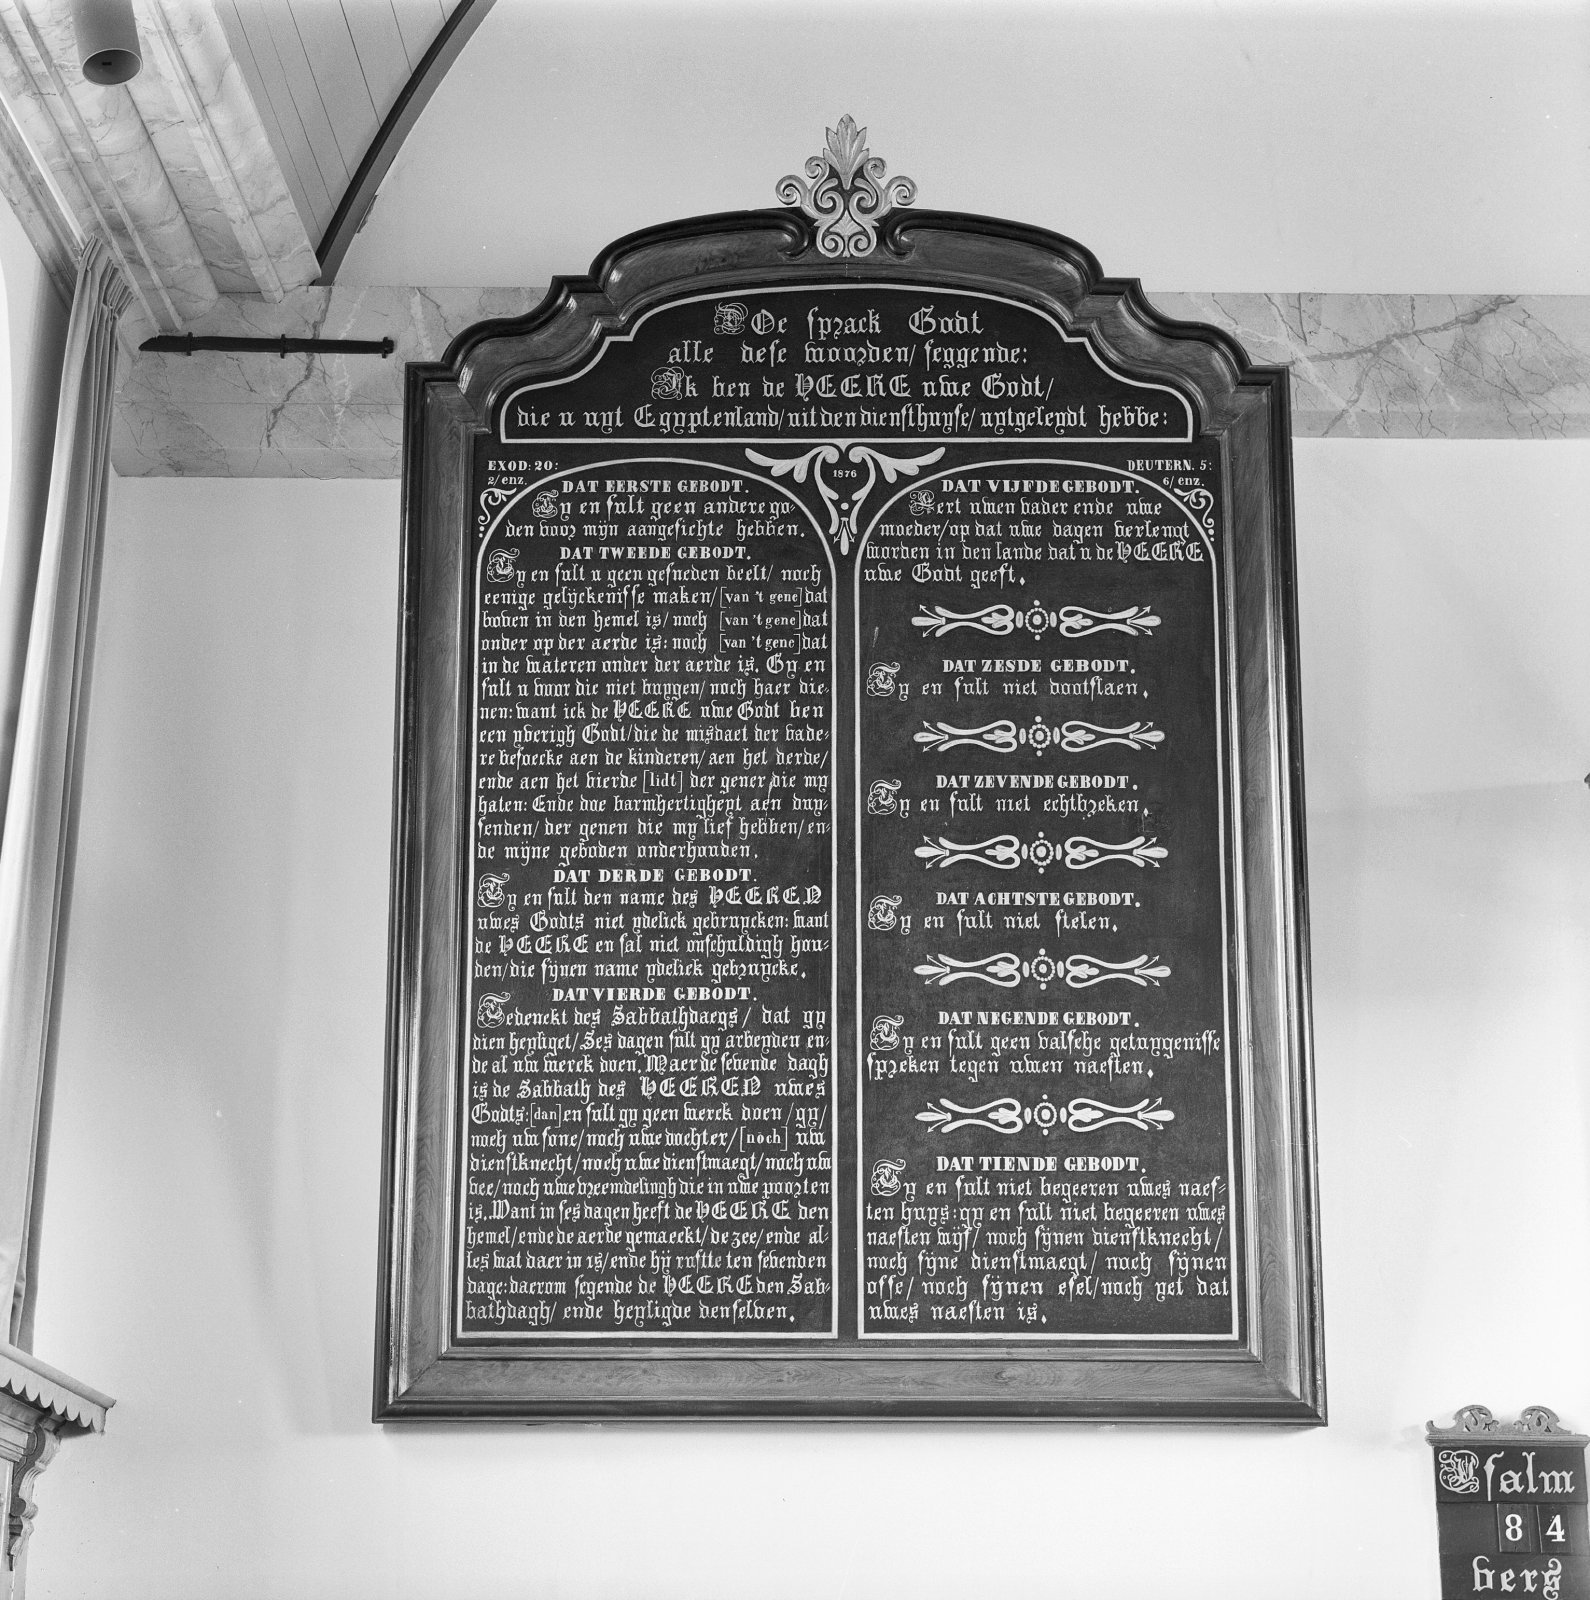 DOe sprack Godt
alle dese woorden/seggende:
Ik ben de HEERE uwe Godt/
die u uyt Egyptenland/uit den diensthuyse/uytgeleydt hebbe:
1876
EXOD: 20:
2/enz.
DAT EERSTE GEBODT.
Gy en sult geen andere go-
den voor mijn aangesichte hebben.
DAT TWEEDE GEBODT.
Gy en sult u geen gesneden beelt/ noch
eenige gelijckenisse maken/[van 't gene]dat
boven in den hemel is/noch [van 't gene]dat
onder op der aerde is: noch [van 't gene]dat
in de wateren onder der aerde is. Gy en
sult u voor die niet buygen/noch haer die-
nen: want ick de HEERE uwe Godt ben
een yverigh Godt/die de misdaet der vade-
re besoecke aen de kinderen/aen het derde/
ende aen het vierde [lidt] der gener die my
haten: Ende doe barmhertigheyt aen duy-
senden/der genen die my lief hebben/en-
de mijne geboden onderhouden.
DAT DERDE GEBODT.
Gy en sult den name des HEEREN
uwes Godts niet ydelick gebruycken: want
de HEERE en sal niet onschuldigh hou-
den/die sijnen name ydelick gebruycke.
DAT VIERDE GEBODT.
Gedenckt des Sabbathdaegs/ dat gy
dien heyliget/Ses dagen sult gy arbeyden en-
de al uw werck doen. Maer de sevende dagh
is de Sabbath des HEEREN uwes
Godts:[dan]en sult gy geen werck doen/gy/
noch uw sone/noch uwe dochter/[noch] uw
dienstknecht/noch uwe dienstmaegt/noch uw
vee/noch uwe vreemdelingh die in uwe poorten
is. Want in ses dagen heeft de HEERE den
hemel/ende de aerde gemaeckt/de zee/ende al-
les wat daer in is/ende hij rustte ten sevenden
dage: daerom segende de HEERE den Sab-
bathdagh/ ende heyligde denselven.
DEUTERN. 5:
6/enz.
DAT VIJFDE GEBODT.
Eert uwen vader ende uwe
moeder/op dat uwe dagen verlengt
worden in den lande dat u de HEERE
uwe Godt geeft.
DAT ZESDE GEBODT.
Gy en sult niet dootslaen.
DAT ZEVENDE GEBODT.
Gy en sult niet echtbreken.
DAT ACHTSTE GEBODT.
Gy en sult niet stelen.
DAT NEGENDE GEBODT.
Gy en sult geen valsche getuygenisse
spreken tegen uwen naesten.
DAT TIENDE GEBODT.
Gy en sult niet begeeren uwes naes-
ten huys: gy en sult niet begeeren uwes
naesten wijf/ noch sijnen dienstknecht/
noch sijne dienstmaegt/ noch sijnen
osse/ noch sijnen esel/noch yet dat
uwes naesten is.
Psalm
84
vers